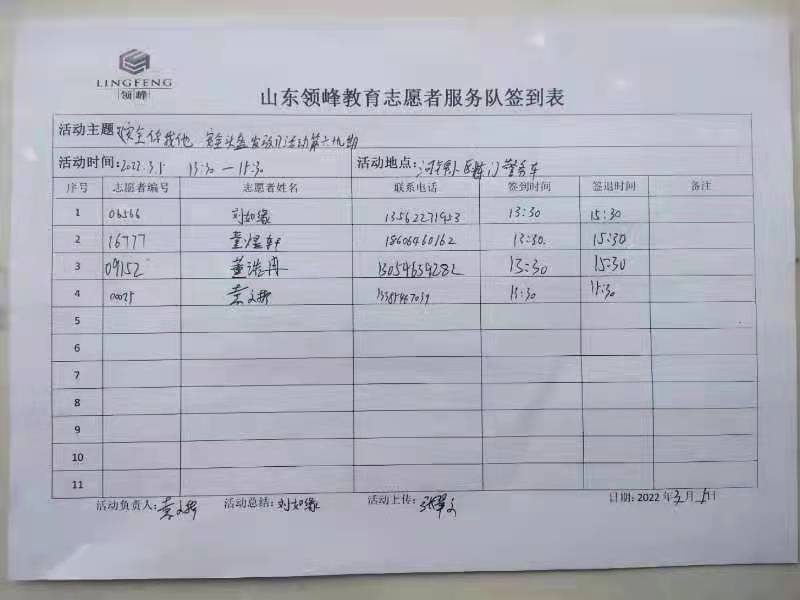 LINGFENG
领峰
山东领峰教育志愿者服务队签到表
活动主题 安全你我他 安全头盔发放 活动第六九期
活动时间: 2022.3.5 13:30 — 15:30 活动地点: 警务车
序号 志愿者编号 志愿者姓名 联系电话 签到时间 签退时间 备注
1 06566 刘如缘 13562271953 13:30 15:30
2 16777 董煜轩 18606460162 13:30. 15:30
3 09152 董浩冉 13054634282 13:30 15:30
4 00025 袁文哲 13:30 15:30
5
6
7
8
9
10
11
活动负责人: 袁文哲 活动总结: 刘如缘 活动上传: 张翠文 日期: 2022 年 3 月 5 日